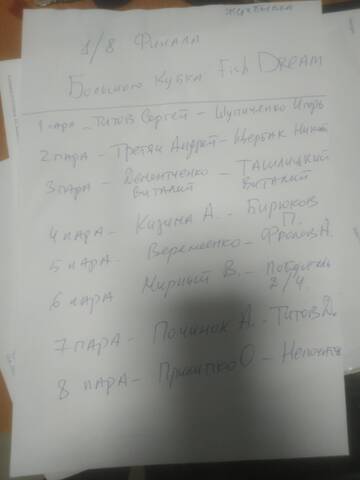 Жеребьевка
1/8 Финала
Большого Кубка Fish Dream
1 пара – Титов Сергей – Шупиченко Игорь
2 пара – Третяк Андрей – Щербак Никита
3 пара – Дементченко Виталий – Ташлицкий Виталий
4 пара – Казима А. – Бирюков П.
5 пара Веремеенко – Фролов А.
6 пара Мирный В. – 2/4
7 пара – Починок А. – Титов Д.
8 пара – Прилипко О – Непочатый